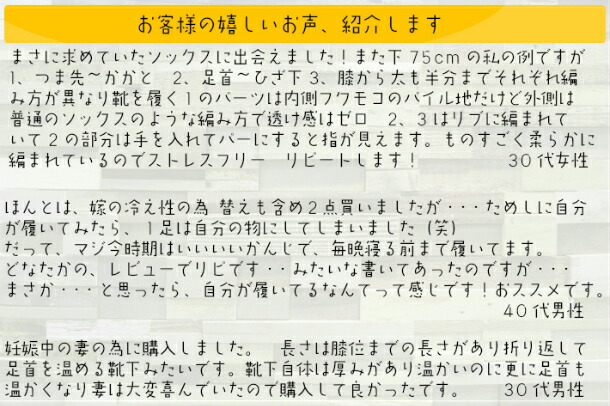 お客様の嬉しいお声、紹介します
まさに求めていたソックスに出会えました！また下75cmの私の例ですが
1、つま先～かかと　2、足首～ひざ下 3、膝から太も半分までそれぞれ編
み方が異なり靴を履く1のパーツは内側フワモコのパイル地だけど外側は
普通のソックスのような編み方で透け感はゼロ　2、3はリブに編まれて
いて2の部分は手を入れてパーにすると指が見えます。ものすごく柔らかに
編まれているのでストレスフリー　リピートします！　30代女性
ほんとは、嫁の冷え性の為 替えも含め2点買いましたが・・・ためしに自分
が履いてみたら、1足は自分の物にしてしまいました（笑）
だって、マジ今時期はいいいいかんじで、毎晩寝る前まで履いてます。
どなたかの、レビューでリピです・・みたいな書いてあったのですが・・・
まさか・・・と思ったら、自分が履いてるなんてって感じです！おススメです。
40代男性
妊娠中の妻の為に購入しました。　長さは膝位までの長さがあり折り返して
足首を温める靴下みたいです。靴下自体は厚みがあり温かいのに更に足首も
温かくなり妻は大変喜んでいたので購入して良かったです。　30代男性